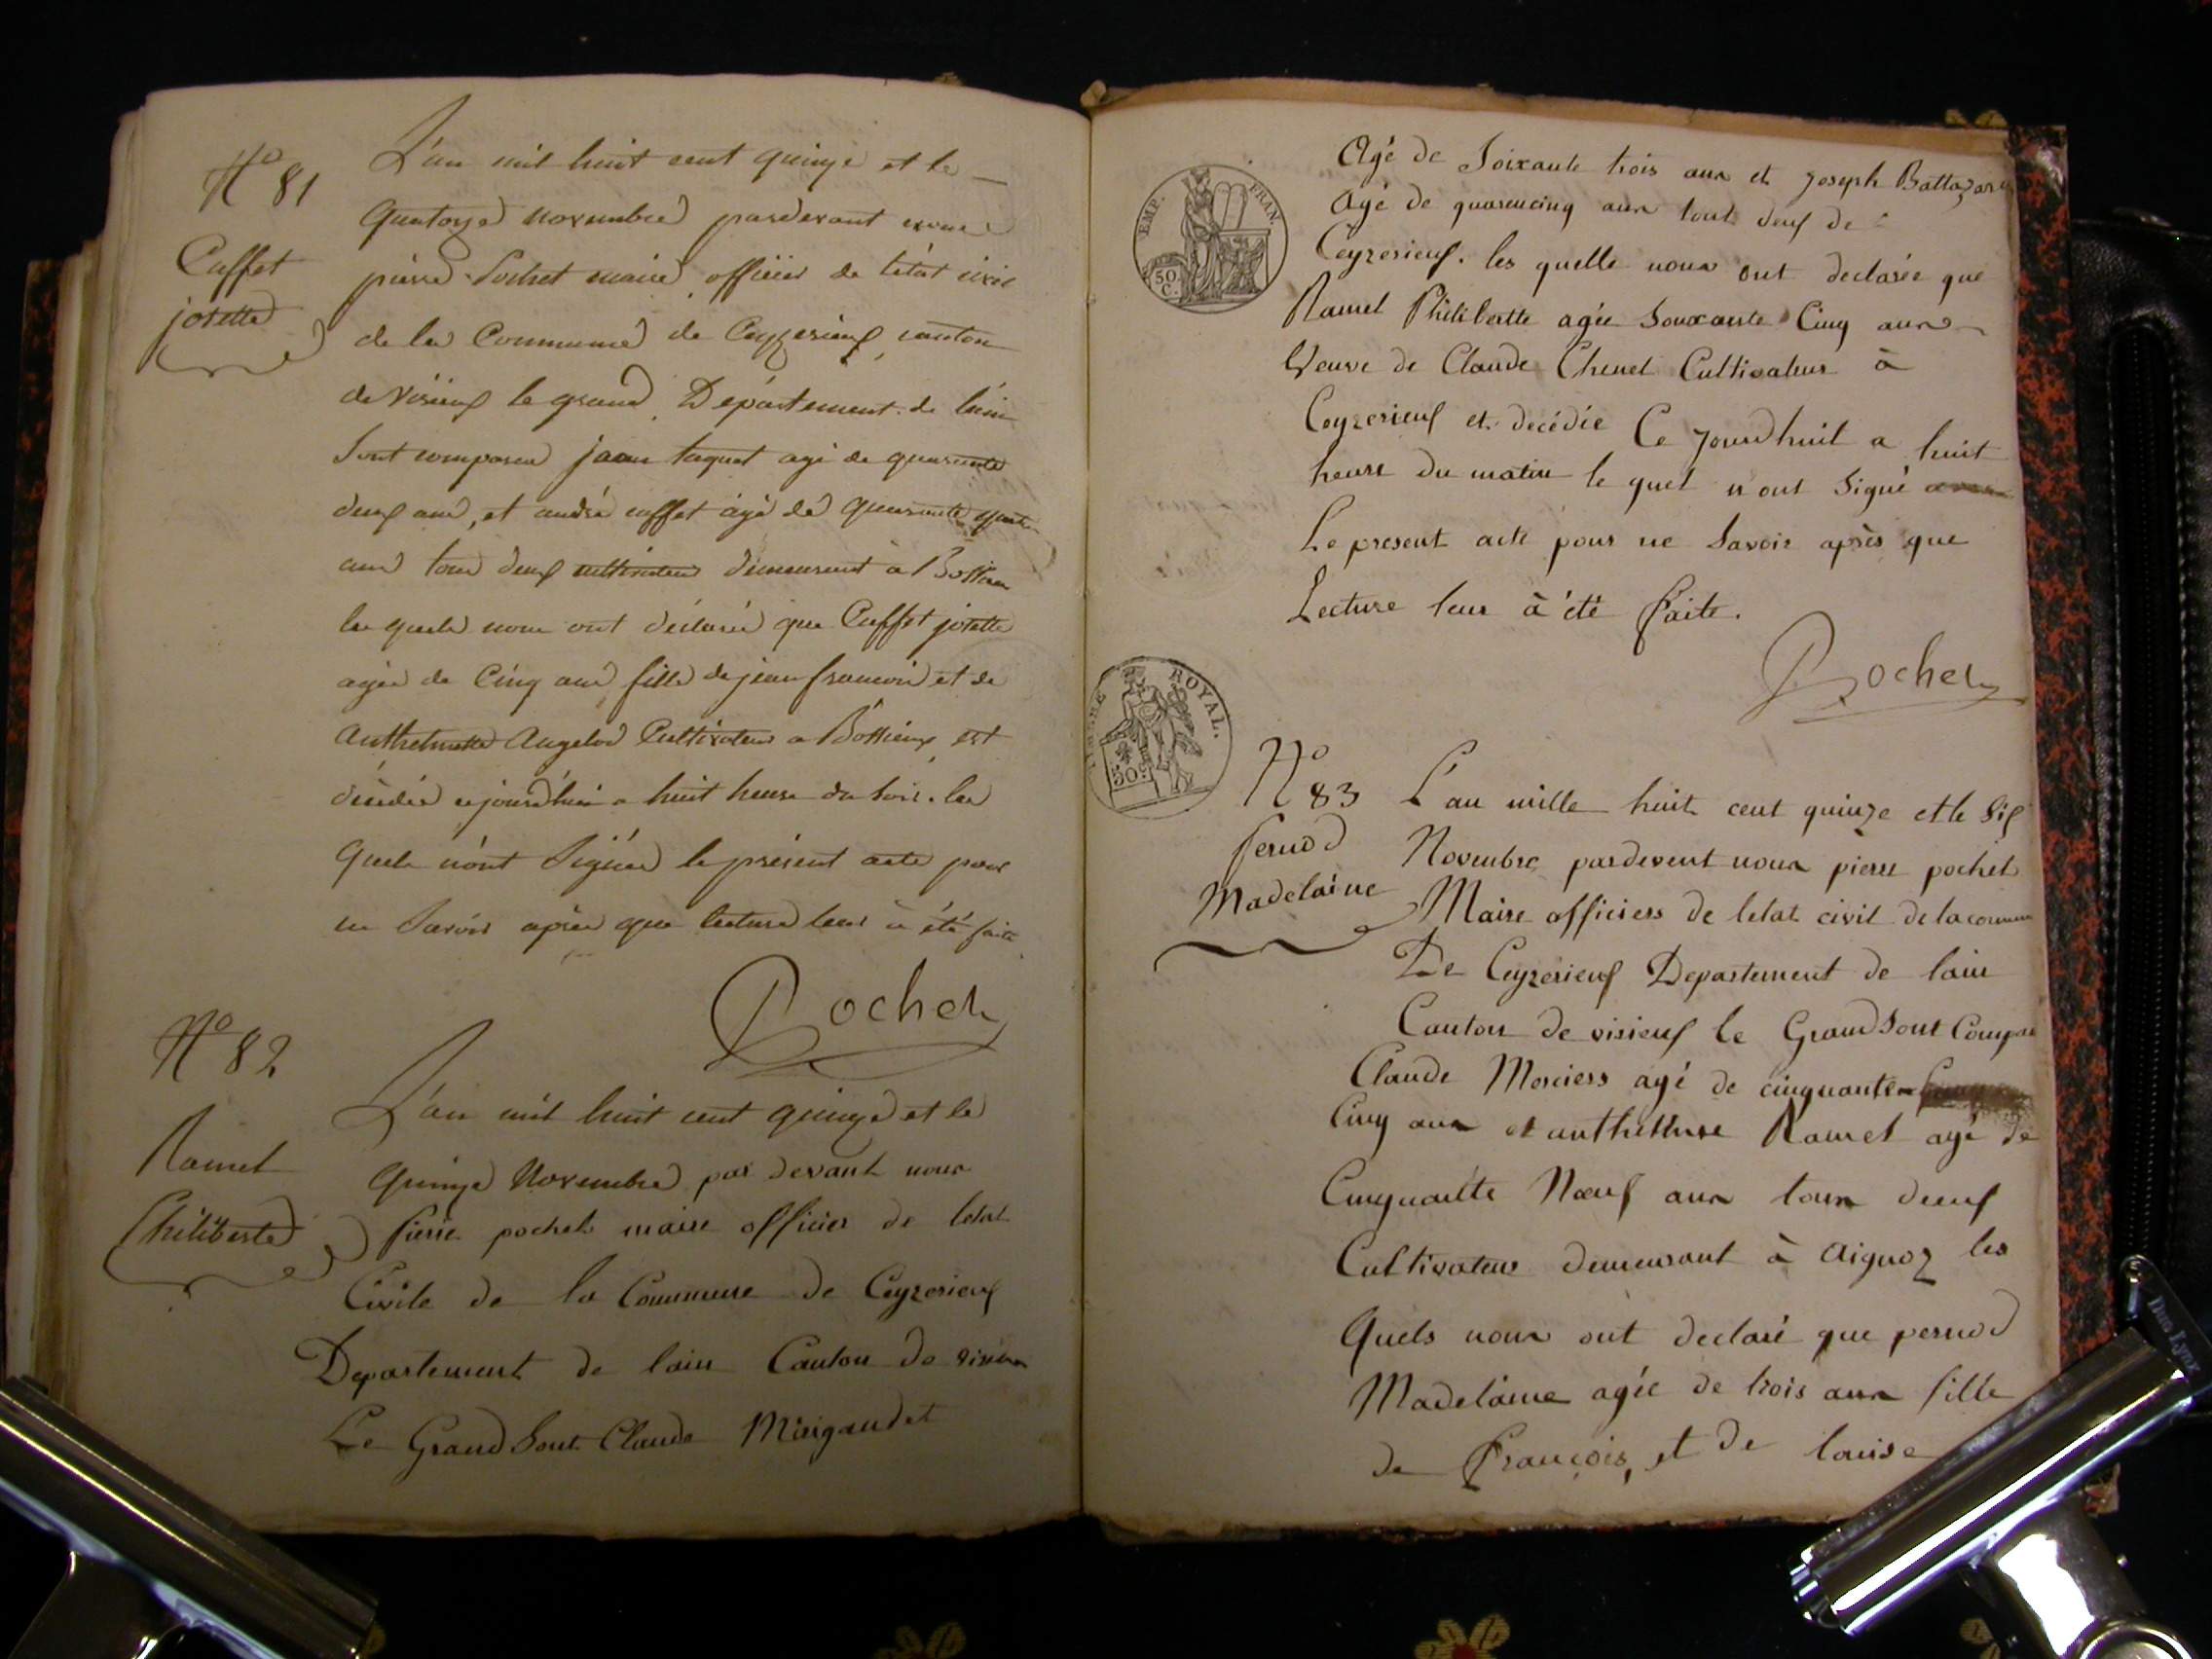 No 81
Caffet
josette
L'an mil huit cent quinze et le
Quatorze novembre pardevant nous
pierre Pochet maire officier de l'etat civil
de la Commune de Ceyzerieux canton
de virieux le grand Département de l'ain
Sont comparus jean taquet agé de quarante
deux ans, et andré caffet âgé de quarante quatre
ans tous deux cultivateur demeurant à
les quels nous ont déclaré que Caffet josette
agée de Cinq ans fille de jean francois et de
Anthelmette Augelod Cultivateur a Bossieux est
décédée cejourdhui a huit heure du soir. les
Quels n'ont Signés le présent acte pour
ne Savoir après que lecture leur à été faite
Pochet
No 82
Ramel
Philiberte
L'an mil huit cent quinze et le
Quinze Novembre par devant nous
Pierre pochet maire officier de letat
Civile de la Commune de Ceyzerieux
Departement de lain Canton de virieux
Le Grand Sont Claude Maigaudet
EMP. FRAN.
50 C.
Agé de Soixante trois ans et joseph Battazard
Agé de quarencinq ans tout deux de
Ceyzerieux. les quelle nous ont declarée que
Ramel Philibertte agée Souxante Cinq ans
Veuve de Claude Chenet Cultivateur à
Ceyzerieux et decédée Ce jourdhuit a huit
heure du matin le quel n ont Signé
Le present acte pour ne Savoir après que
Lecture leur à été faite.
Pochet
TIMBRE ROYAL.
50 c.
No 83
pernod
Madelaine
L'an mille huit cent quinze et le Six
Novembre pardevent nous pierre pochet
Maire officiers de letat civil de la commune
De Ceyzerieux Departement de lain
Canton de virieux le Grand Sont Compar
Claude Merciers agé de cinquante
Cinq ans et anthelme Ramel agé de
Cinquante Noeuf ans tous deux
Cultivateur demeurant à Aignoz les
Quels nous ont declaré que pernod
Madelaine agée de trois ans fille
de François, et de louise